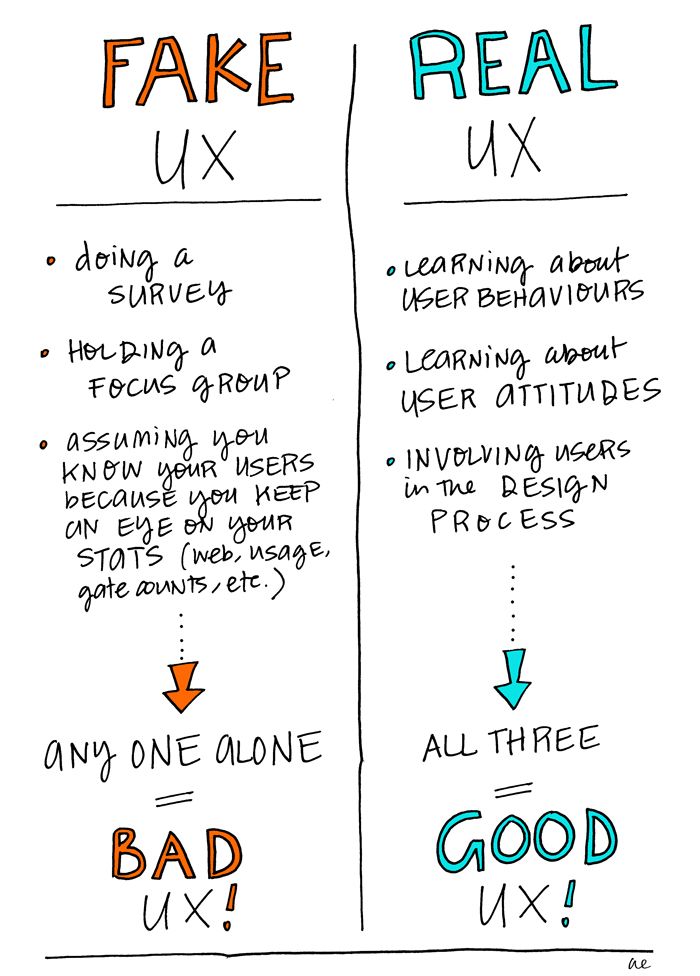 FAKE
UX
• doing a
SURVEY
• HOLDING a
FOCUS group
• assuming you
KNOW your USERS
because you KEEP
an EYE on your
STATS (web, usage,
gate counts, etc.)
any ONE ALONE
=
BAD
UX!
REAL
UX
• Learning about
USER BEHAVIOURS
• Learning about
USER ATTITUDES
• INVOLVING users
in the DESIGN
PROCESS
ALL THREE
=
GOOD
UX!
ae